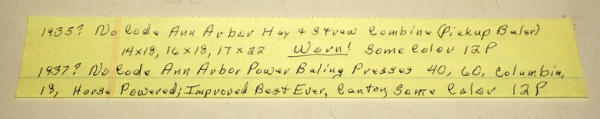 1935? No Code Ann Arbor Hay & Straw Combine (Pickup Baler)
14x18, 16x18, 17x22 Worn! Some Color 12P
1937? No Code Ann Arbor Power Baling Presses 40, 60, Columbia,
18, Horse Powered; Improved Best Ever, Canton Some Color 12P